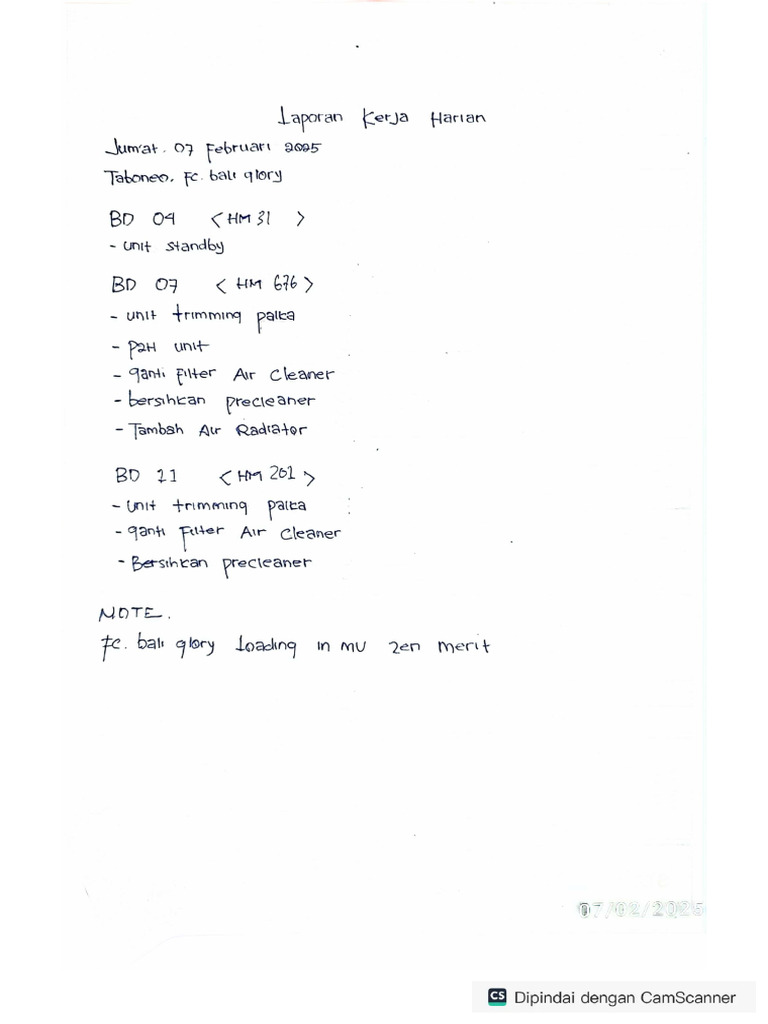 Laporan Kerja Harian
Jum'at. 07 Februari 2025
Taboneo, Fc. bali glory
BD 04 < HM 31 >
- unit standby
BD 07 < HM 676 >
- unit trimming palka
- P2H unit
- ganti Filter Air Cleaner
- bersihkan precleaner
- Tambah Air Radiator
BD 11 < HM 201 >
- unit trimming palka
- ganti Filter Air Cleaner
- Bersihkan precleaner
NOTE.
Fc. bali glory Loading in MV Zen merit
07/02/2025
CS Dipindai dengan CamScanner